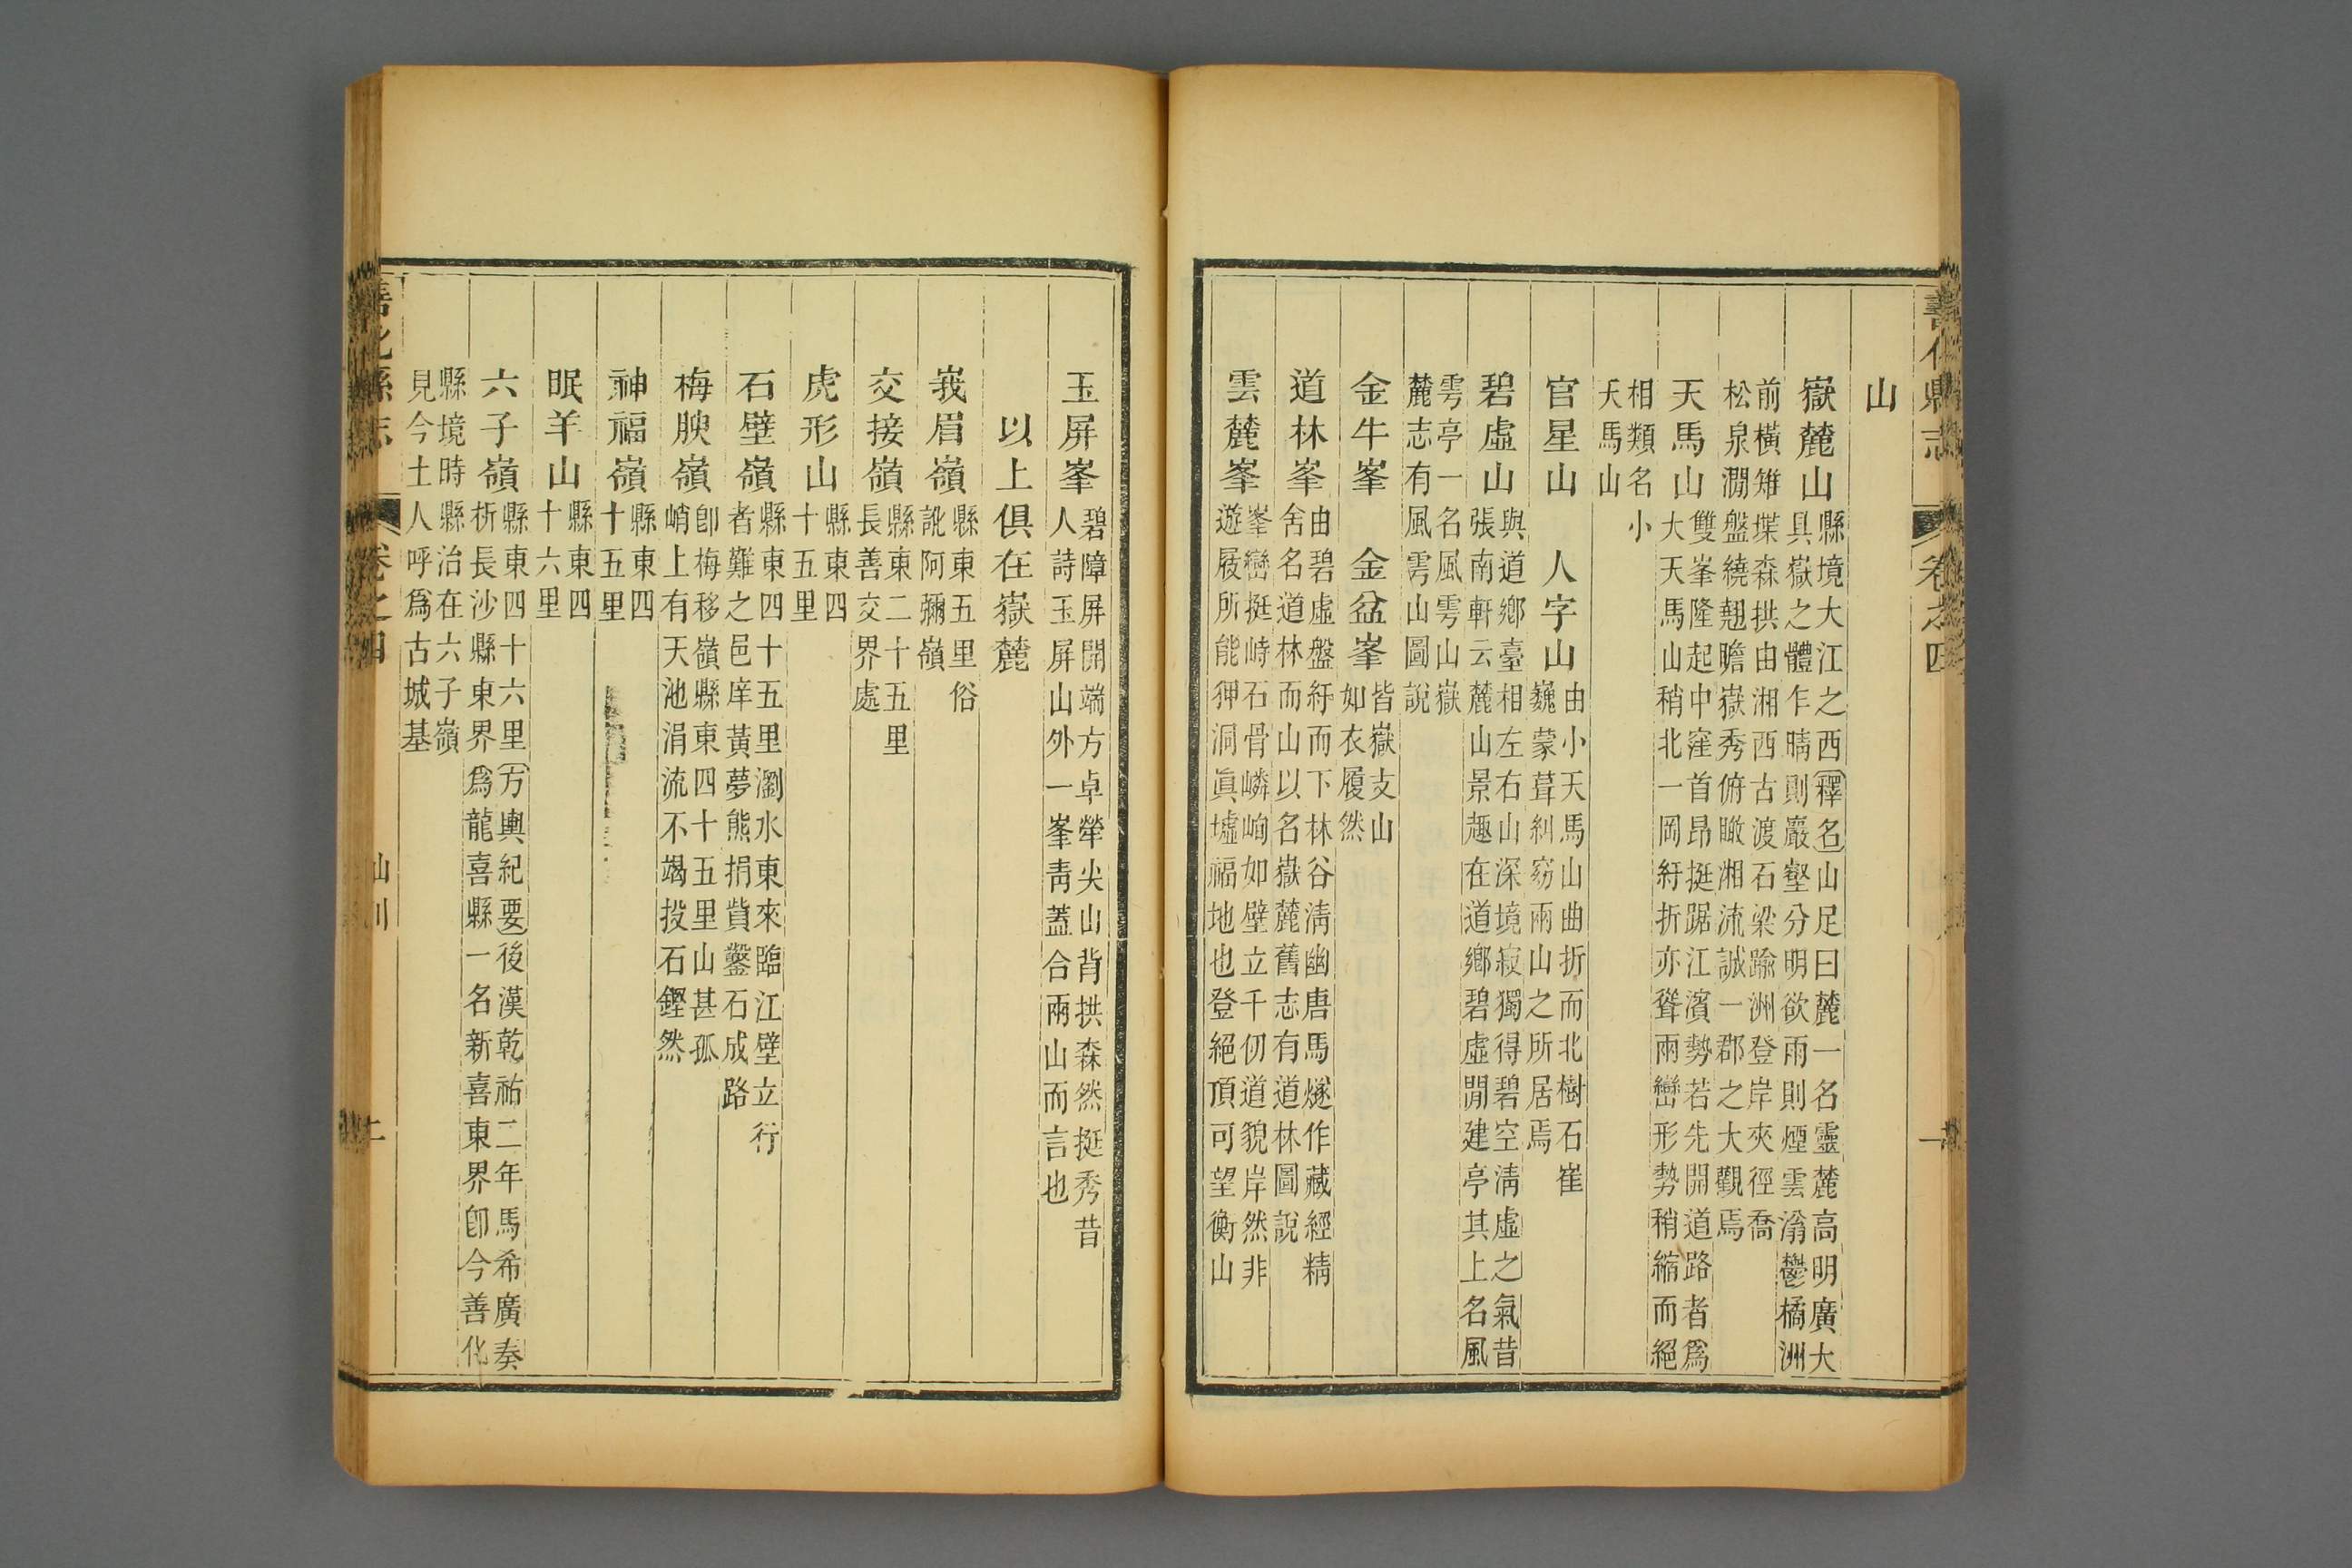 善化縣志
卷之四
山
嶽麓山縣境大江之西釋名山足曰麓一名靈麓高明廣大
具嶽之體乍晴則巖壑分明欲雨則煙雲滃鬱橘洲
前橫雉堞森拱由湘西古渡石梁踰洲登岸夾徑喬
松泉澗盤繞翹瞻嶽秀俯瞰湘流誠一郡之大觀焉
天馬山雙峯隆起中窪首昂挺踞江濱勢若先開道路者爲
大天馬山稍北一岡紆折亦聳兩巒形勢稍縮而絕
相類名小
天馬山
官星山
人字山由小天馬山曲折而北樹石崔
巍蒙葺糾窈兩山之所居焉
碧虛山與道鄉臺相左右山深境寂獨得碧空淸虛之氣昔
張南軒云麓山景趣在道鄉碧虛閒建亭其上名風
雩亭一名風雩山嶽
麓志有風雩山圖說
金牛峯
金盆峯皆嶽支山
如衣履然
道林峯由碧虛盤紆而下林谷淸幽唐馬燧作藏經精
舍名道林而山以名嶽麓舊志有道林圖說
雲麓峯峯巒挺峙石骨嶙峋如壁立千仞道貌岸然非
遊屐所能狎洞眞墟福地也登絕頂可望衡山
玉屏峯碧障屏開端方卓犖尖山背拱森然挺秀昔
人詩玉屏山外一峯靑蓋合兩山而言也
以上俱在嶽麓
峩眉嶺縣東五里俗
訛阿彌嶺
交接嶺縣東二十五里
長善交界處
虎形山縣東四
十五里
石壁嶺縣東四十五里瀏水東來臨江壁立行
者難之邑庠黃夢熊捐貲鑿石成路
梅腴嶺卽梅移嶺縣東四十五里山甚孤
峭上有天池涓流不竭投石鏗然
神福嶺縣東四
十五里
眠羊山縣東四
十六里
六子嶺縣東四十六里方輿紀要後漢乾祐二年馬希廣奏
析長沙縣東界爲龍喜縣一名新喜東界卽今善化
縣境時縣治在六子嶺
見今土人呼爲古城基
善化縣志
卷之四
山川
二